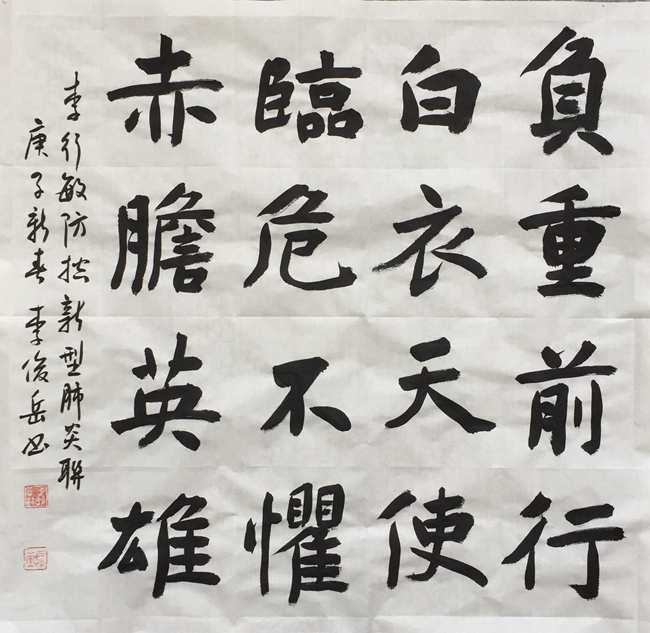 負重前行
白衣天使
臨危不懼
赤膽英雄
李行敏防控新型肺炎聯
庚子新春 李俊岳书